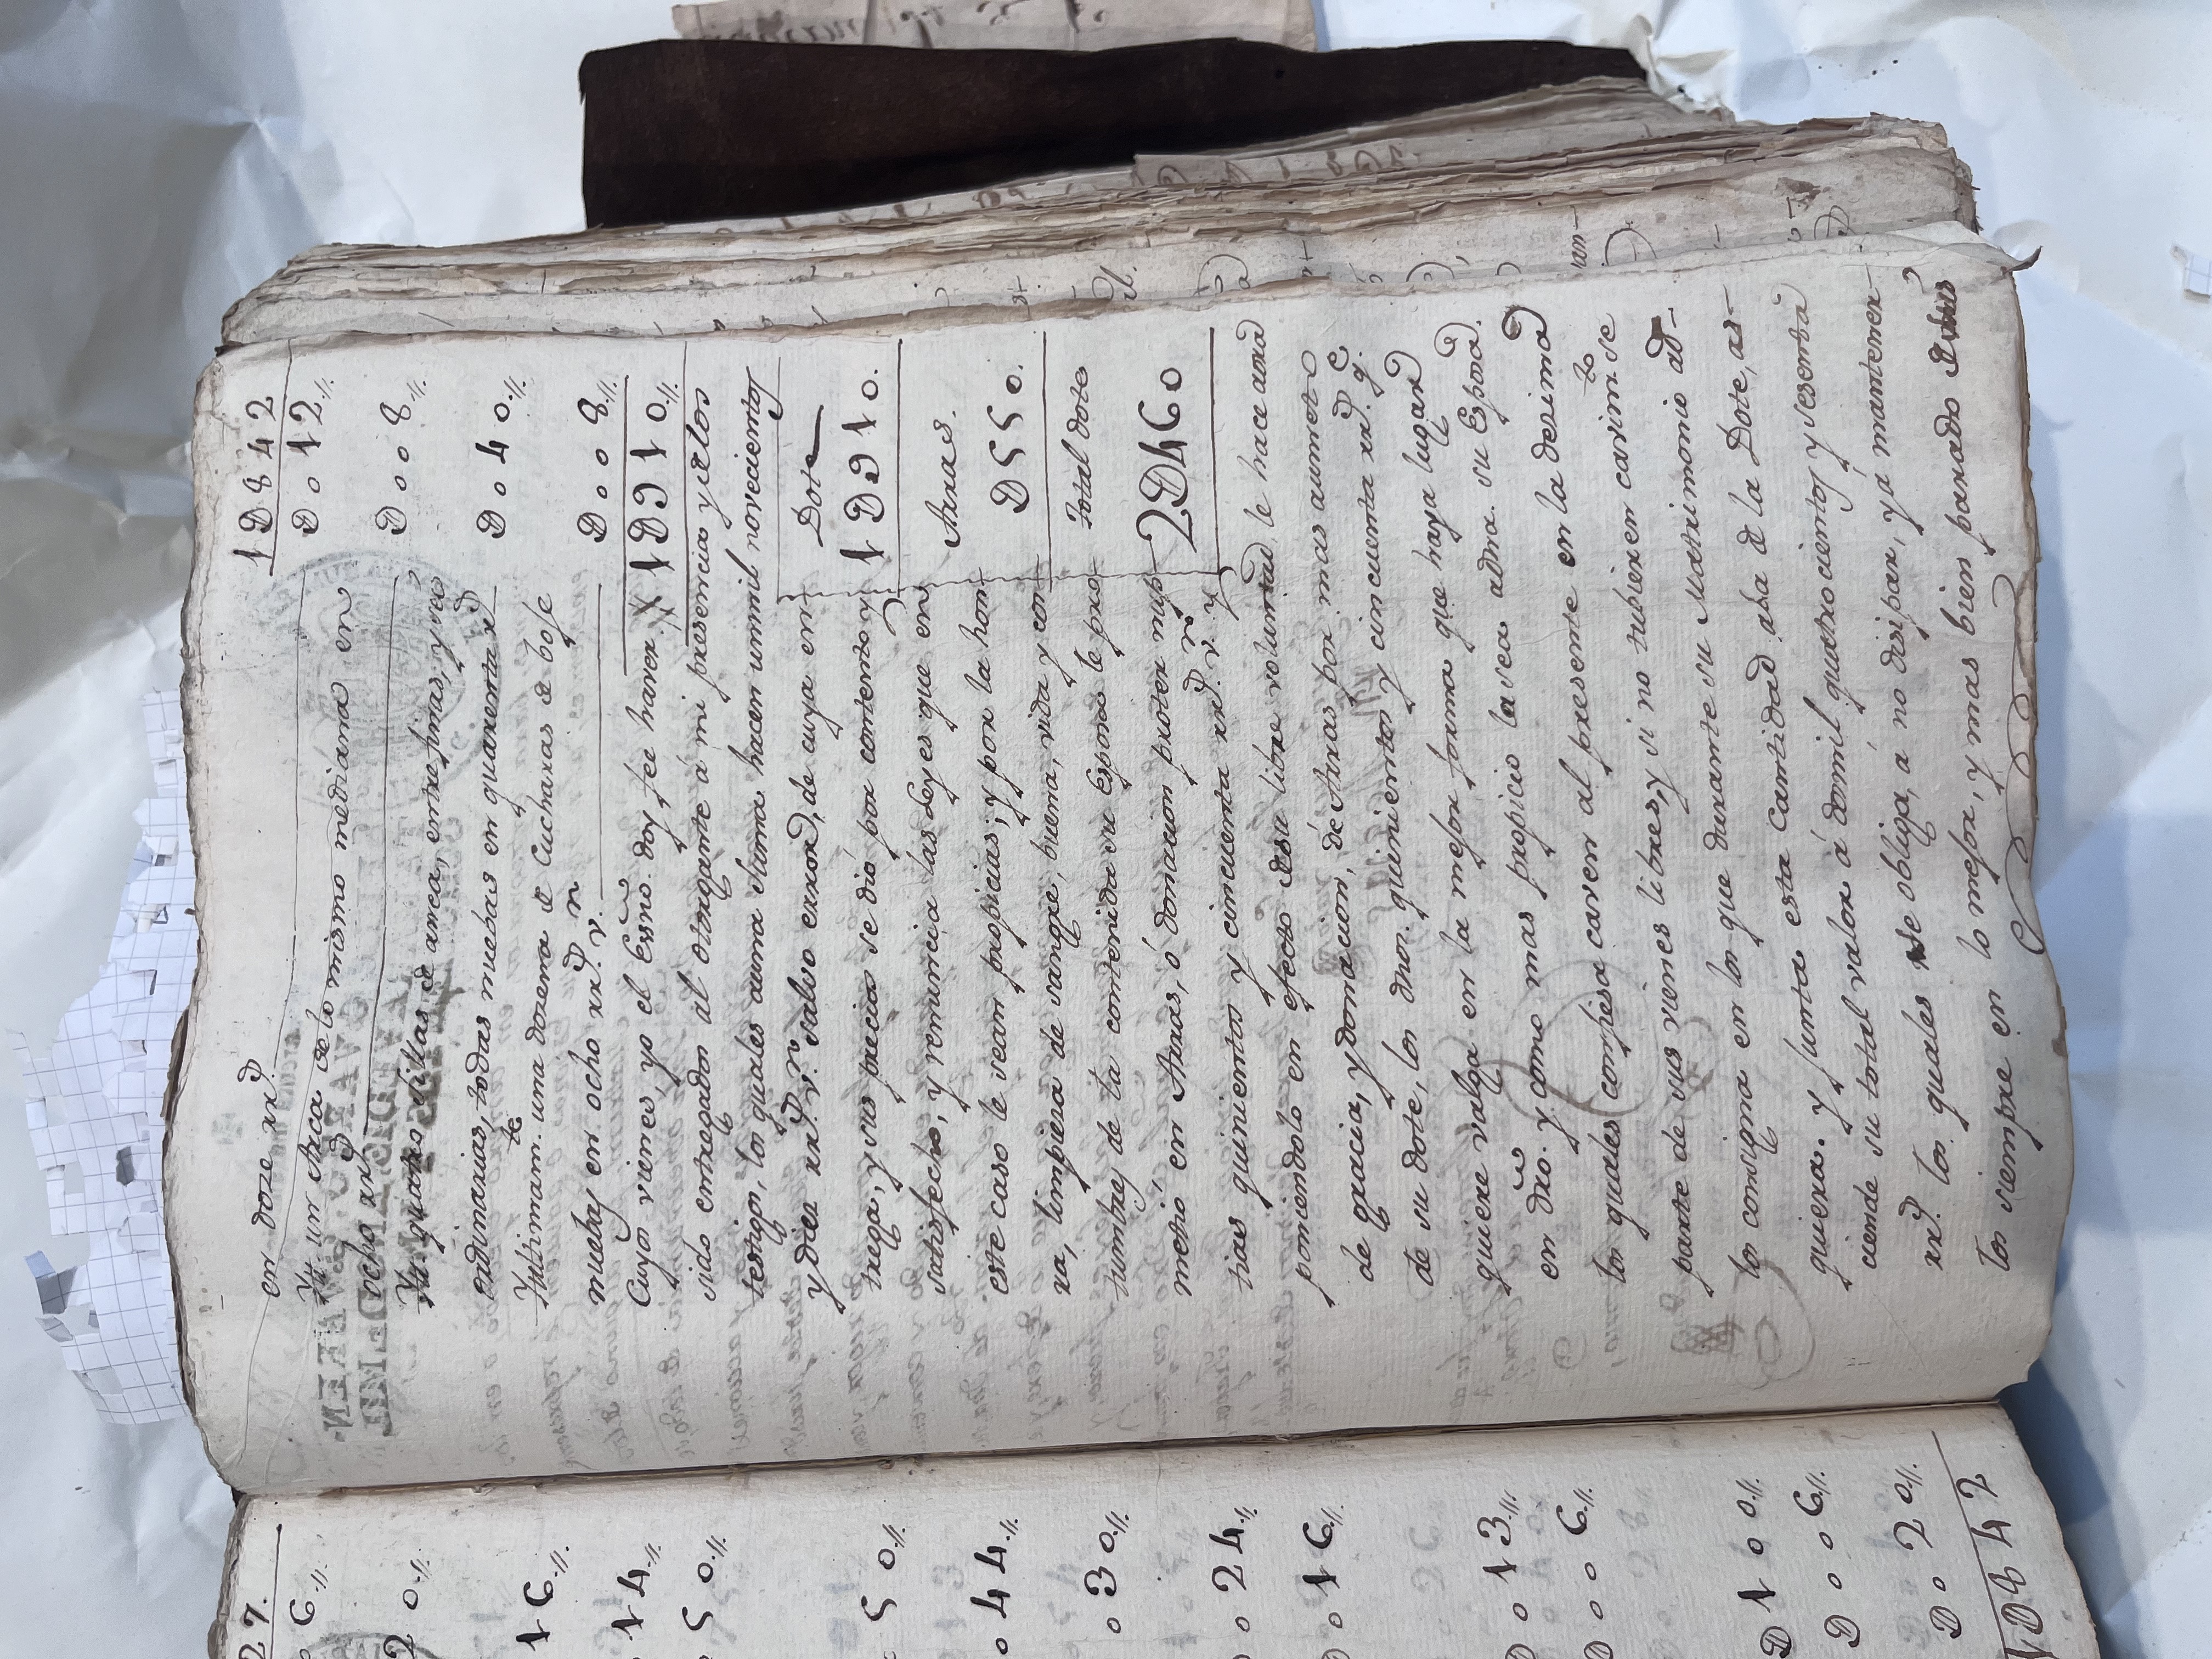 1D842
en doze rr.^s D.o12.//.
Yt. un Arca de lo mismo mediana en
ocho rr.^s D.oo8.//.
Yt. quatro sillas de anea, entre finas, y
ordinarias, todas nuebas en quarenta r.^s D.o4o.//.
Yultimam.^te una dozena de Cucharas de boje
nuebas en ocho rr.^s v.^n D.oo8.//.
Cuyos vienes, yo el Essno. doy feé haver 1D91o.//.
sido entregados al otorgante á mi presencia y delos
testigos, los quales auna Suma hacen unmil novecientos
y diez rr.^s v.^n salvo error, de cuya en Dote
trega, y sus precios se dió por contento y 1D91o.
satisfecho, y renuncia las Leyes que en Arras.
este caso le sean propicias; y por la hon D55o.
ra, limpieza de sangre, buena, vida y cos
tumbres de la contenida su Esposa le pro Total dote
metió en Arras, ó donacion propter nup 2D46o
tias quinientos y cincuenta rr.^s v.^n y
poniendolo en efecto desu libre voluntad, le hace ana
de gracia, y donacion, dé Arras por mas aumento
de su dote, los dhos. quinientos y cincuenta rr.^s q.^e
quiere valga en la mejor forma que haya lugar
en dro. y como mas propicio la sea adha. su Esposa.
los quales confiesa caven al presente en la dezima
parte de sus vienes libres, y si no tubieren cavim.^to se
los consigna en los que durante su Matrimonio ad-
quiera. y junta esta cantidad ala de la Dote, as-
ciende su total valor á dosmil quatrocientos y sesenta
rr.^s los quales se obliga, a no disipar, ya mantener-
los siempre en lo mejor, y mas bien parado
27.
6.//.
2o.//.
16.//.
14.//.
5o.//.
5o.//.
o44.//.
o3o.//.
o24.//.
D.o16.//.
D.o13.//.
D.oo6.//.
D1oo.//.
D.oo6.//.
D.o2o.//.
1D842